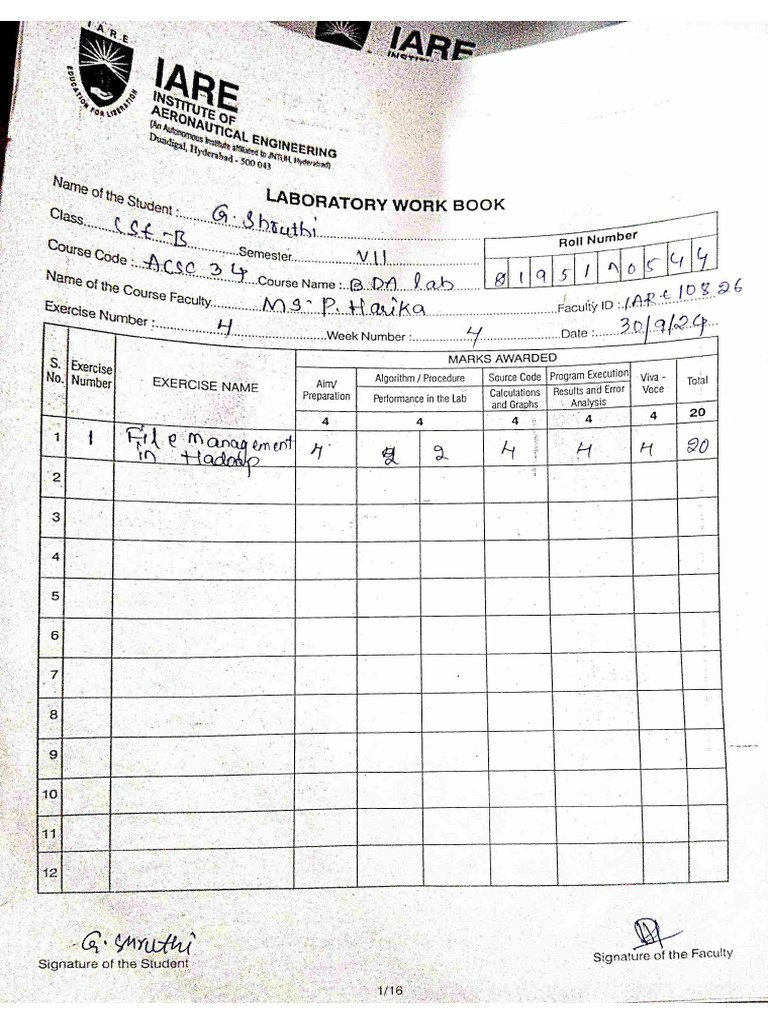 I A R E
EDUCATION FOR LIBERATION
IARE
IARE
INSTITUTE OF
AERONAUTICAL ENGINEERING
(An Autonomous Institute affiliated to JNTUH, Hyderabad)
Dundigal, Hyderabad - 500 043
LABORATORY WORK BOOK
Name of the Student : G. Shruthi
Class CSE-B Semester VII Roll Number
Course Code : ACSC34 Course Name : BDA lab 1 9 5 1 0 5 4 4
Name of the Course Faculty Ms. P. Harika Faculty ID : IARE10826
Exercise Number : 4 Week Number : 4 Date : 30/9/24
S. No. Exercise Number EXERCISE NAME MARKS AWARDED
Aim/ Preparation Algorithm / Procedure Source Code Program Execution Viva - Voce Total
Performance in the Lab Calculations and Graphs Results and Error Analysis
4 4 4 4 4 20
1 1 File Management in Hadoop 4 2 2 4 4 4 20
2
3
4
5
6
7
8
9
10
11
12
G. Shruthi
Signature of the Student Signature of the Faculty
1/16